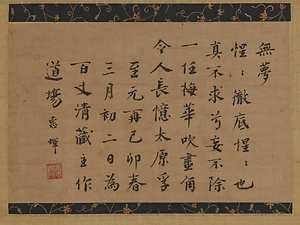 無夢
惺〻徹底惺〻也
真不求兮妄不除
一任梅華吹畫角
令人長憶太原孚
至元再己卯春
三月初二日為
百丈清蔵主作
道場 恵暉